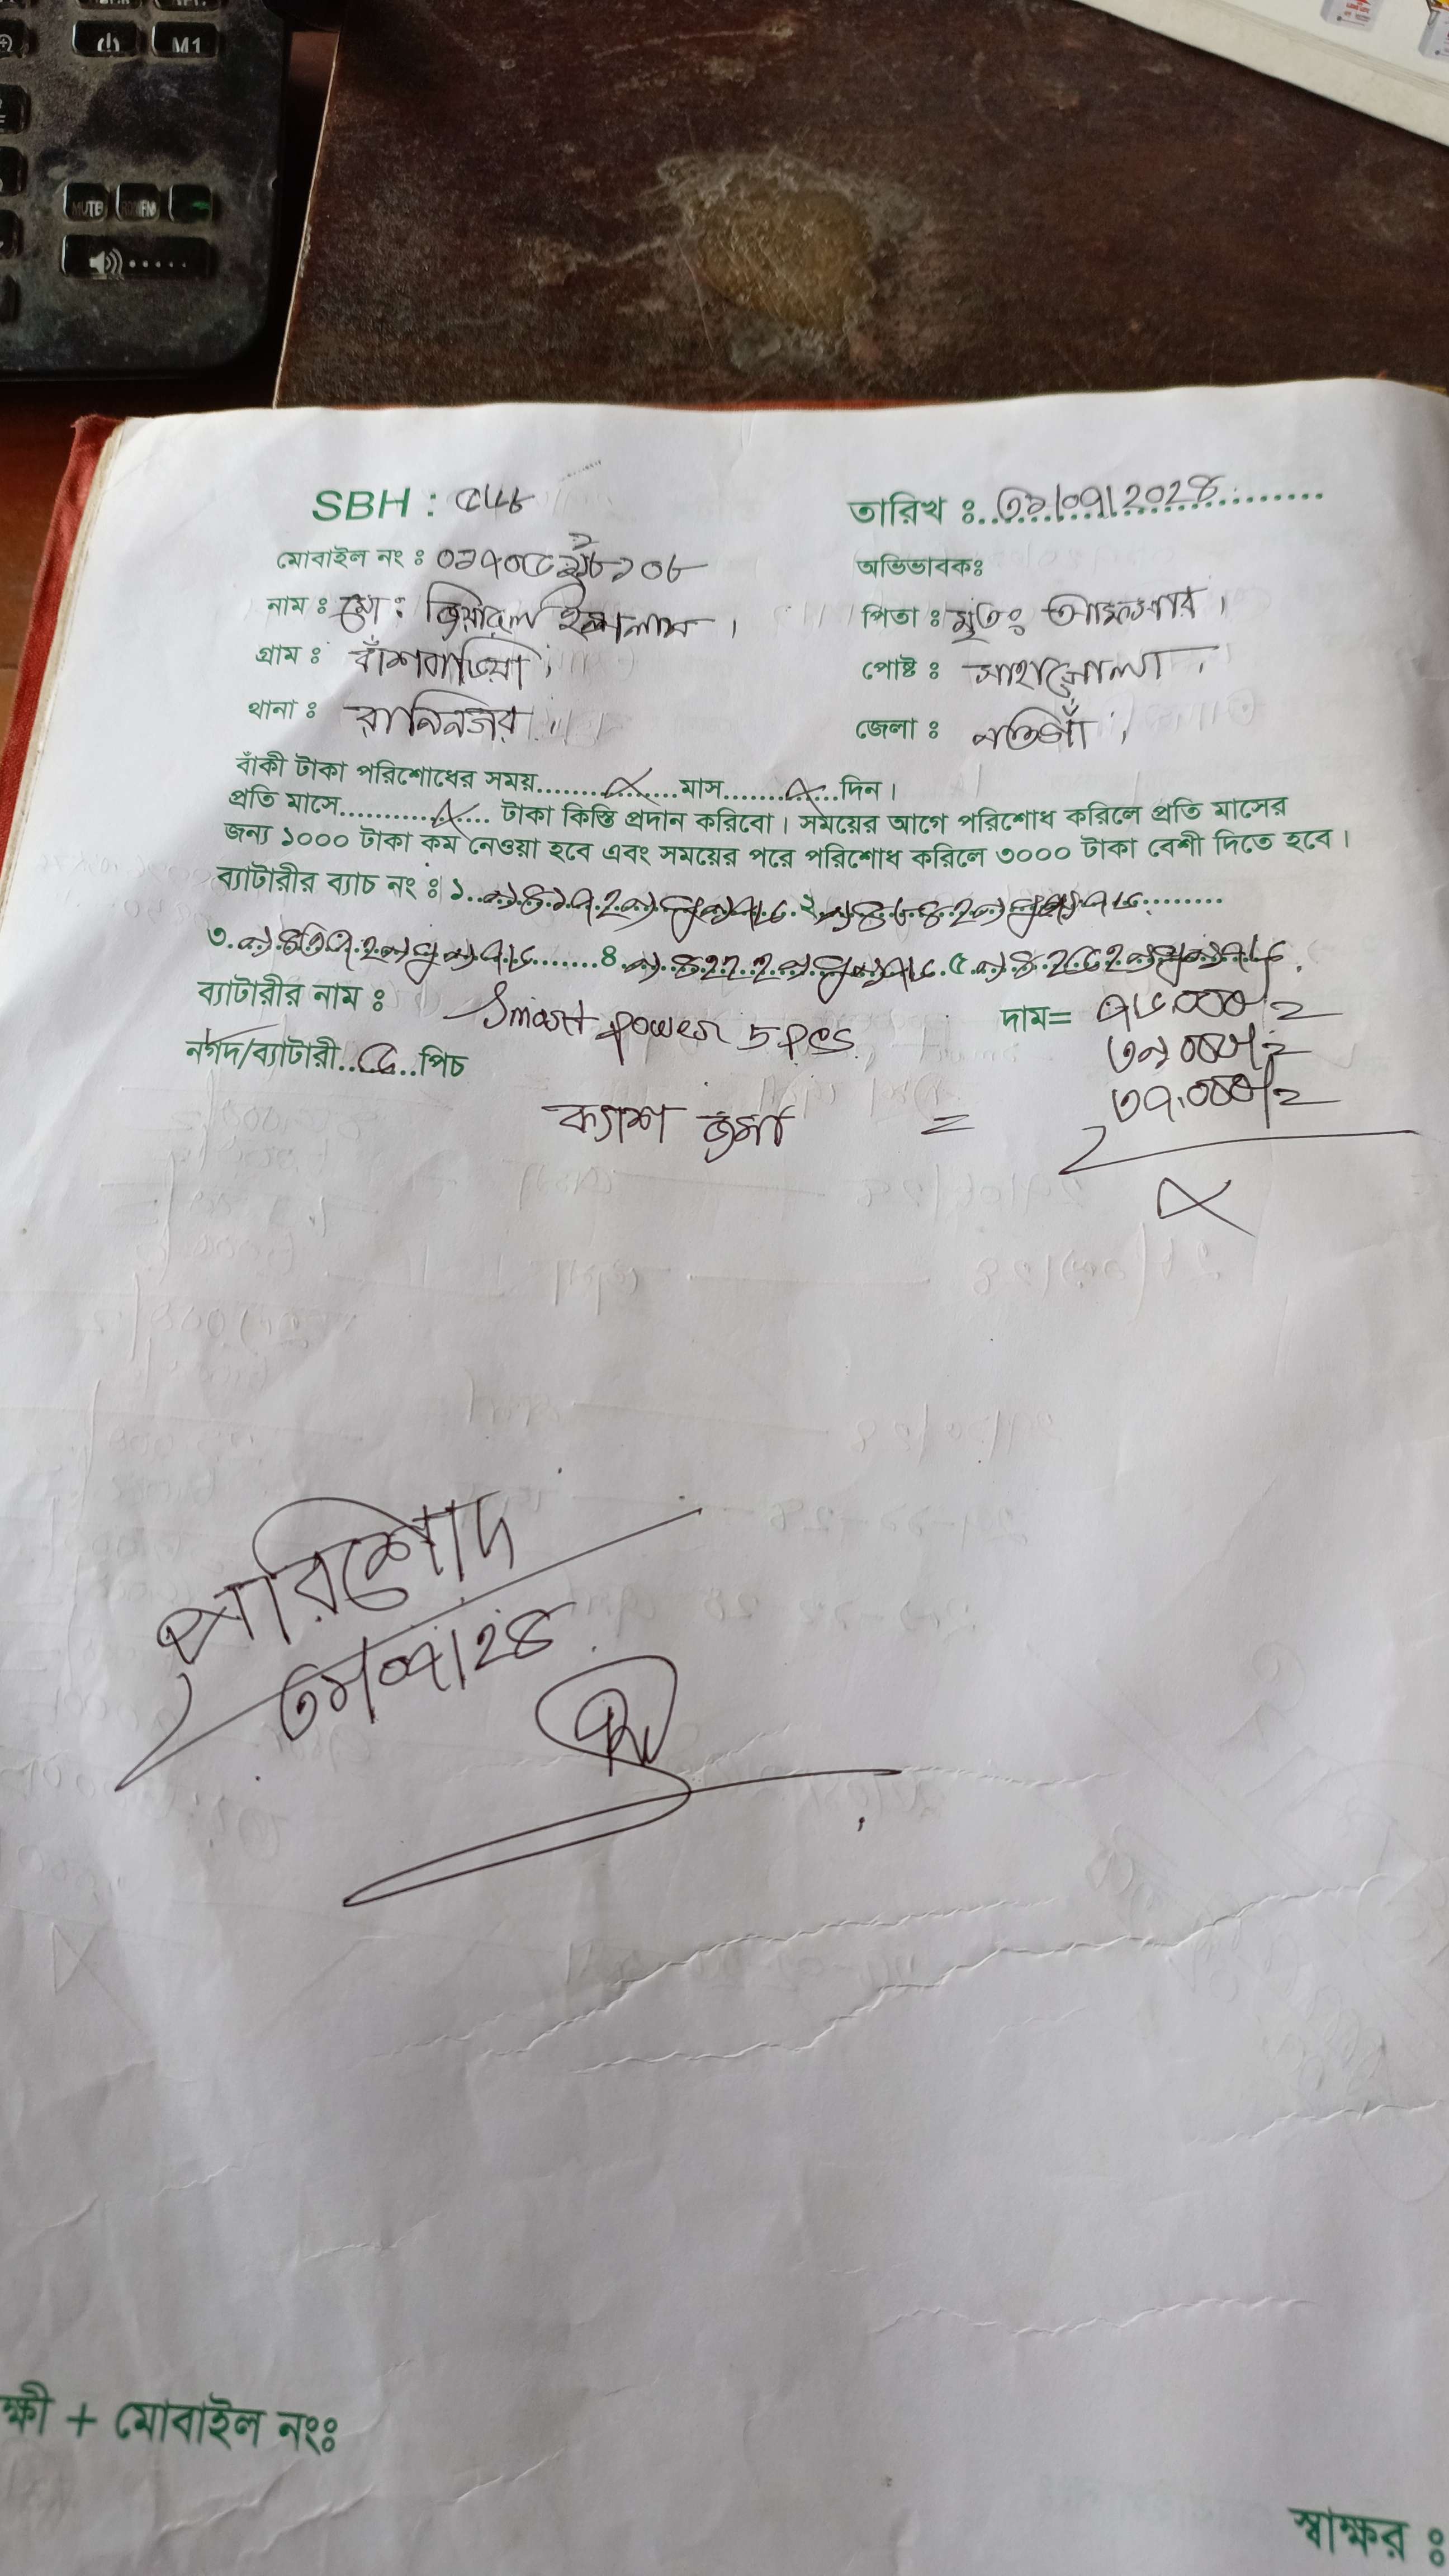 M1
MUTE
SBH : ৫৬৮
তারিখ ঃ ৩১/০৭/2028
মোবাইল নং ঃ
অভিভাবকঃ
নাম ঃ মো: জিয়ারুল ইসলাম ।
পিতা ঃ মৃতঃ আফসার ।
গ্রাম ঃ বাঁশবাড়িয়া ।
পোষ্ট ঃ সাহাগোলা ।
থানা ঃ রানিনগর ।
জেলা ঃ নওগাঁ ।
বাঁকী টাকা পরিশোধের সময়.......X.......মাস.......X.......দিন ।
প্রতি মাসে.......X....... টাকা কিস্তি প্রদান করিবো । সময়ের আগে পরিশোধ করিলে প্রতি মাসের
জন্য ১০০০ টাকা কম নেওয়া হবে এবং সময়ের পরে পরিশোধ করিলে ৩০০০ টাকা বেশী দিতে হবে ।
ব্যাটারীর ব্যাচ নং ঃ ১. ২.
৩. ৪. ৫.
ব্যাটারীর নাম ঃ Smart power 5 pes
দাম= ৭৬০০০/=
৩৯,০০০/=
নগদ/ব্যাটারী..৫..পিচ
ক্যাশ জমা = ৩৭,০০০/=
X
পরিশোদ
৩১/০৭/২৪
ক্ষী + মোবাইল নংঃ
স্বাক্ষর ঃ